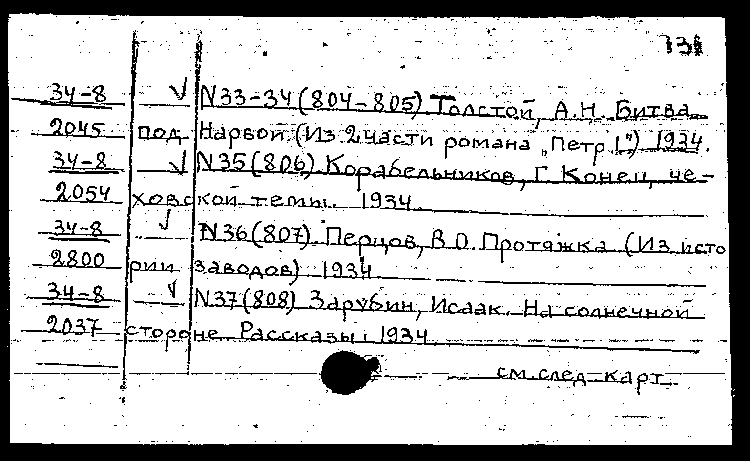 131
34-8 √ N33-34(804-805) Толстой, А.Н. Битва
2045 под Нарвой (Из 2 части романа „Петр I") 1934.
34-8 √ N35(806) Корабельников, Г. Конец че-
2054 ховской темы. 1934.
34-8 √ N36(807). Перцов, В.О. Протяжка (Из исто
2800 рии заводов) 1934.
34-8 √ N37(808) Зарубин, Исаак. На солнечной
2037 стороне Рассказы. 1934
см. след карт.